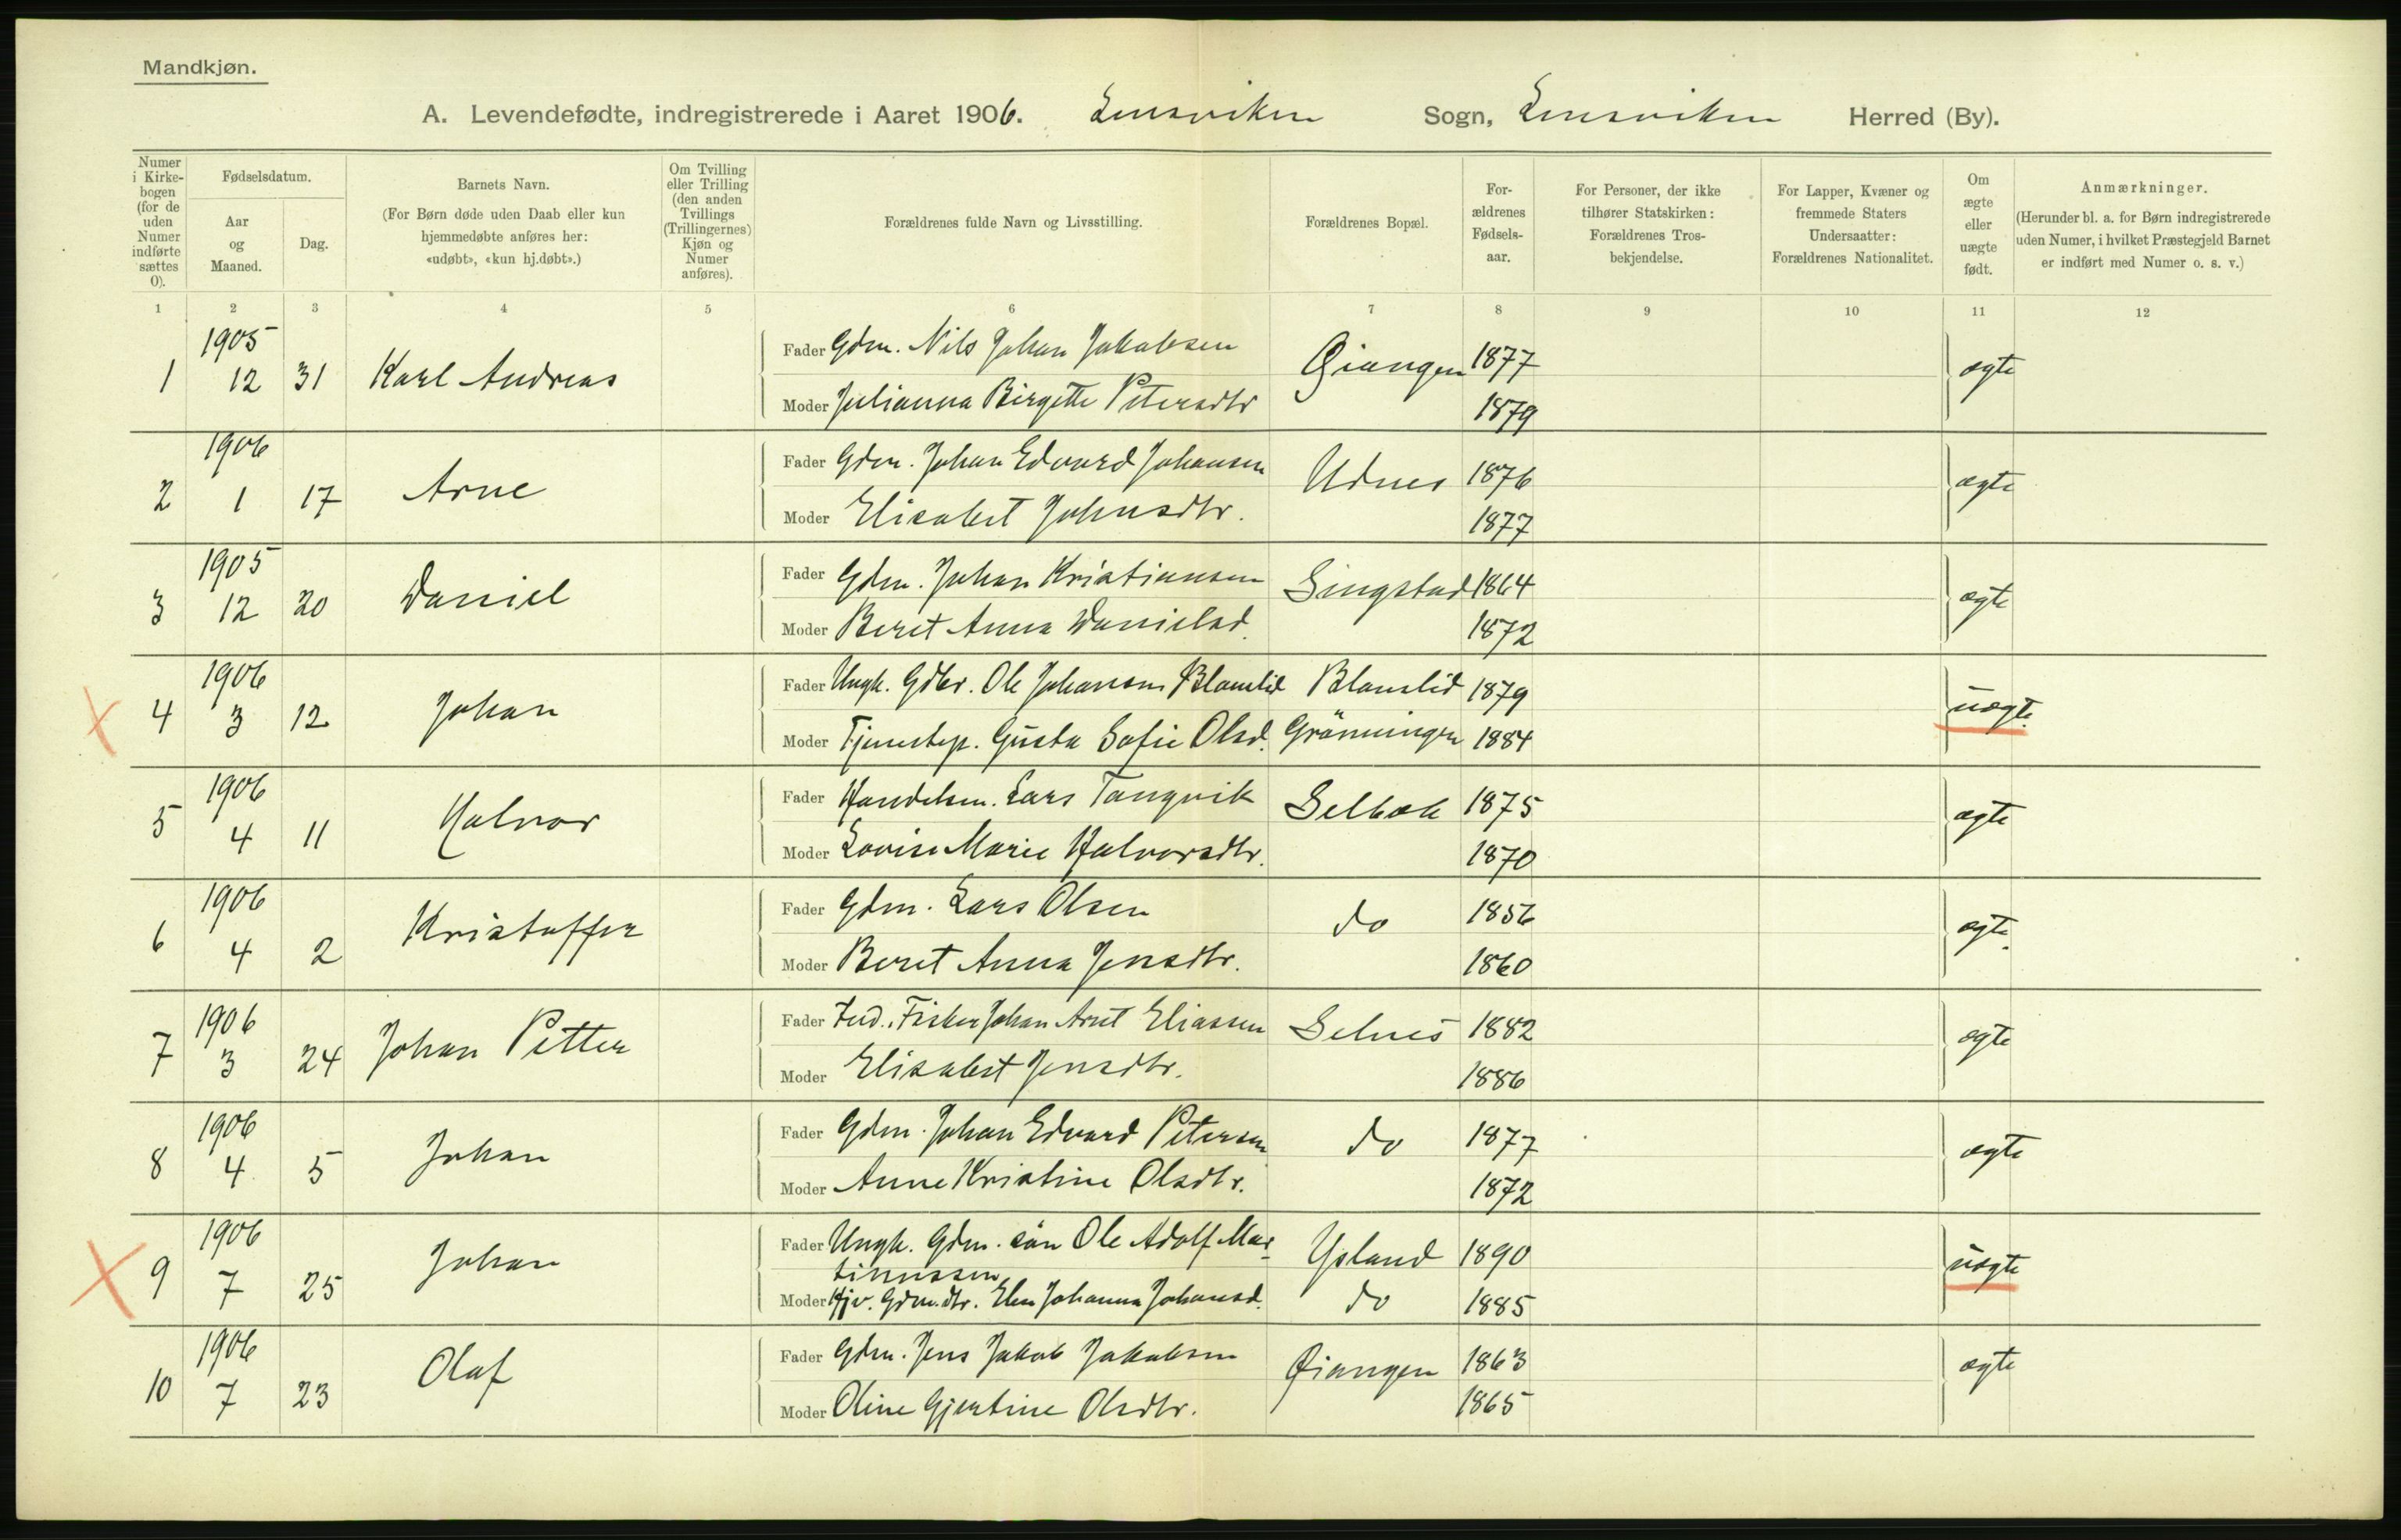 Mandkjøn.
A. Levendefødte, indregistrerede i Aaret 1906. Lensviken Sogn, Lensviken Herred (By).
Numer i Kirkebogen (for de uden Numer indførte sættes 0).
Fødselsdatum.
Aar og Maaned.
Dag.
Barnets Navn.
(For Børn døde uden Daab eller kun hjemmedøbte anføres her: «udøbt», «kun hj.døbt».)
Om Tvilling eller Trilling (den anden Tvillings (Trillingernes) Kjøn og Numer anføres).
Forældrenes fulde Navn og Livsstilling.
Forældrenes Bopæl.
For-ældrenes Fødsels-aar.
For Personer, der ikke tilhører Statskirken: Forældrenes Tros-bekjendelse.
For Lapper, Kvæner og fremmede Staters Undersaatter: Forældrenes Nationalitet.
Om ægte eller uægte født.
Anmærkninger.
(Herunder bl. a. for Børn indregistrerede uden Numer, i hvilket Præstegjeld Barnet er indført med Numer o. s. v.)
1 2 3 4 5 6 7 8 9 10 11 12
1 1905 12 31 Karl Andreas
Fader Gdm. Nils Johan Jakobsen 1877 ægte
Moder Julianna Birgitte Petersdtr 1879
2 1906 1 17 Arne
Fader Gdm. Johan Edvard Johansen Udnes 1876 ægte
Moder Elisabet Johnsdtr. 1877
3 1905 12 20 Daniel
Fader Gdm. Johan Kristiansen Singstad 1864 ægte
Moder Beret Anna Danielsd. 1872
4 1906 3 12 Johan
Fader Ungk. Gdbr. Ole Johansen Blamslid Blamslid 1879 uægte
Moder Tjenestep. Gusta Sofie Olsd. Grönningen 1884
5 1906 4 11 Halvor
Fader Handelsm. Lars Tangvik Selbæk 1875 ægte
Moder Lovise Marie Halvorsdtr. 1870
6 1906 4 2 Kristoffer
Fader Gdm. Lars Olsen do 1856 ægte
Moder Beret Anna Jensdtr. 1860
7 1906 3 24 Johan Petter
Fader Ind., Fisker Johan Arnt Eliassen Selnes 1882 ægte
Moder Elisabet Jensdtr. 1886
8 1906 4 5 Johan
Fader Gdm. Johan Edvard Petersen do 1877 ægte
Moder Anne Kristine Olsdtr. 1872
9 1906 7 25 Johan
Fader Ungk. Gdm. sön Ole Adolf Mar-
tinussen Ysland 1890 uægte
Moder Pjv. Gdm.dtr. Elen Johanna Johansd. do 1885
10 1906 7 23 Olaf
Fader Gdm. Jens Jakob Jakobsen Øiangen 1863 ægte
Moder Oline Gjertine Olsdtr. 1865